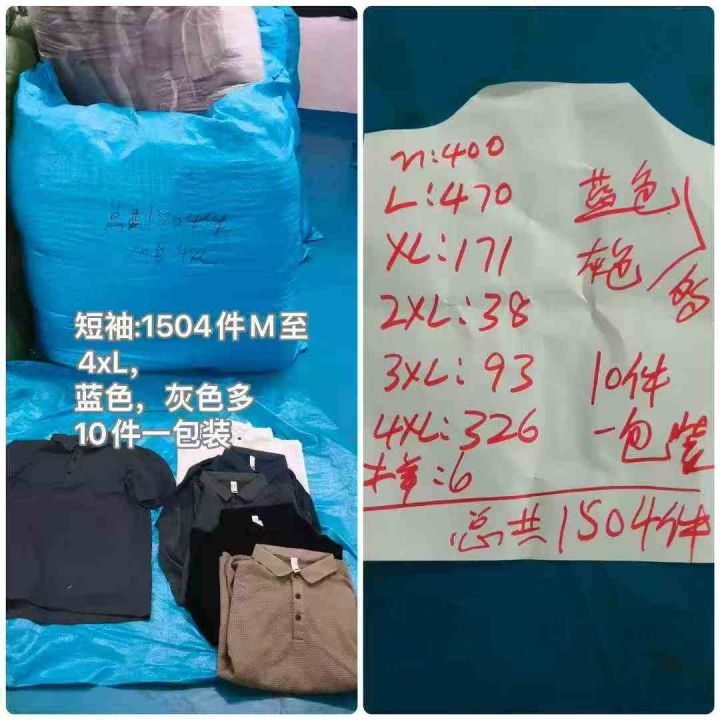 短袖:1504件M至
4xL,
蓝色，灰色多
10件一包装
m:400
L:470 蓝色
XL:171 灰色 多
2XL:38
3XL:93 10件
4XL:326 一包装
:6
总共1504件